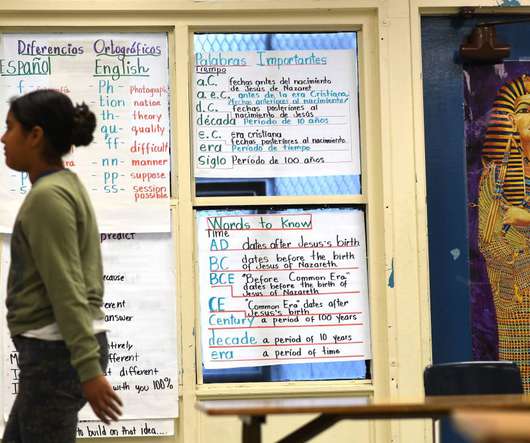 Diferencias Ortográficas
Español English
f- Ph photograph
tion nation
th- theory
qu- quality
ff difficult
nn- manner
pp- suppose
ss- session
possible
Palabras Importantes
Tiempo
a.C. fechas antes del nacimiento
de Jesús de Nazaret
a.e.C. antes de la era Cristiana
(fechas anteriores al nacimiento)
d.C. fechas posteriores al
nacimiento de Jesús
década Período de 10 años
e.C. era cristiana
fechas posteriores al nacimiento
era Período de tiempo
Siglo Período de 100 años
Words to Know
Time
AD dates after Jesus's birth
BC dates before the birth
of Jesus of Nazareth
BCE "Before Common Era"
dates before the birth of
Jesus of Nazareth
CE "Common Era" dates after
Jesus's birth
Century a period of 100 years
decade a period of 10 years
era a period of time
predict
cause
erent
answer
ely
different
st different
with you 100%
to build on that idea....